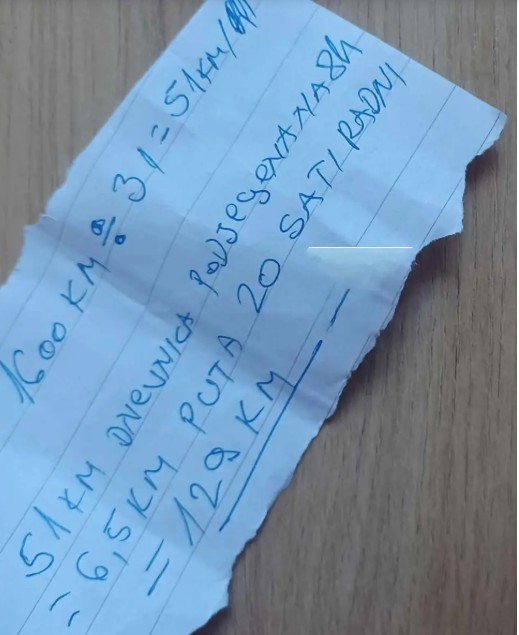 1600 KM ÷ 31 = 51 KM/
51 KM DNEVNICA PODJEGENA NA 8h
= 6,5 KM PUTA 20 SATI RADNI
= 129 KM